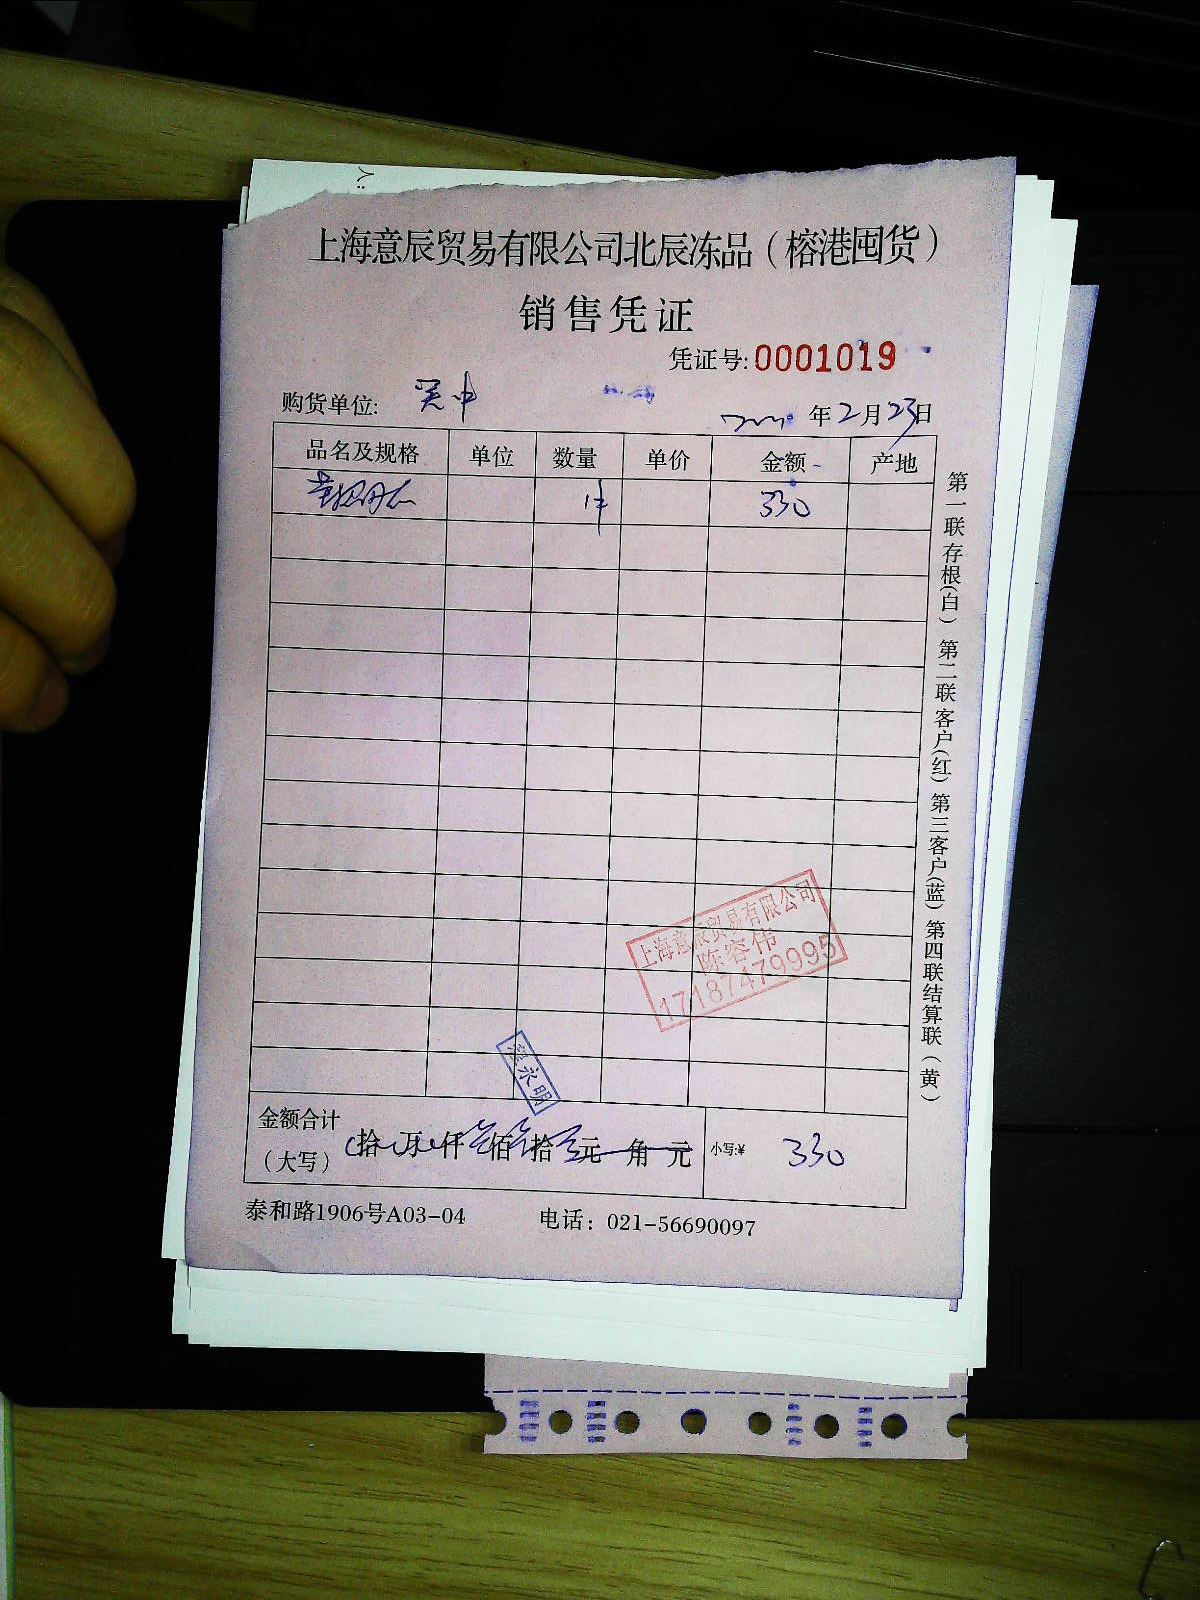 人:
上海意辰贸易有限公司北辰冻品（榕港囤货）
销售凭证
凭证号:0001019
购货单位: 吴中
年2月23日
品名及规格 单位 数量 单价 金额 产地
1件 330
上海意辰贸易有限公司
陈容伟
17187479995
永明
金额合计
（大写） 拾 万 仟 佰 拾 元 角 元 小写:¥ 330
泰和路1906号A03-04 电话：021-56690097
第一联存根(白) 第二联客户(红) 第三客户(蓝) 第四联结算联（黄）